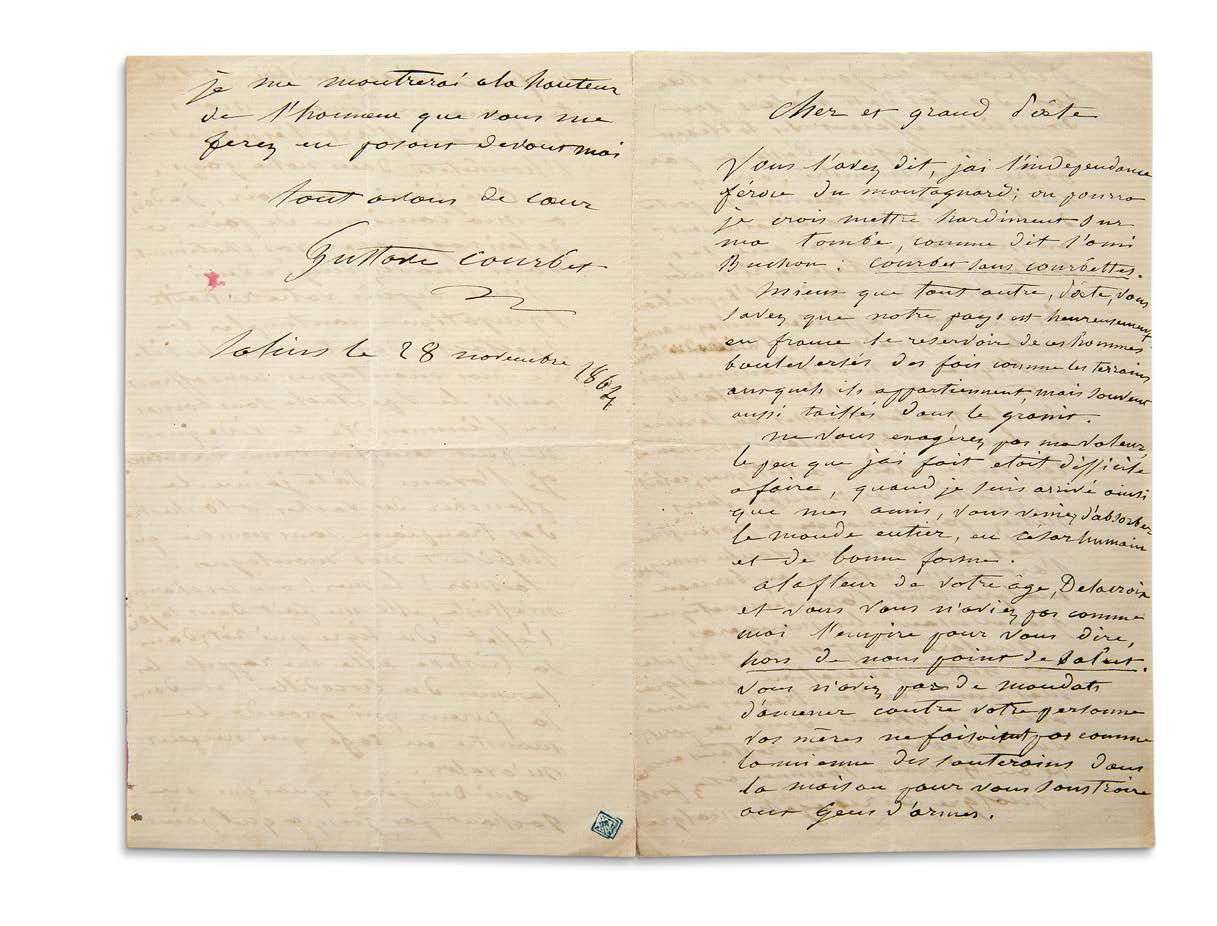 Cher et grand Poëte
Vous l'avez dit, jai l'independance
féroce du montagnard; on pourra
je crois mettre hardiment sur
ma tombe, comme dit l'ami
Buchon : Courbet sans courbettes.
Mieux que tout autre, Poëte, vous
savez que notre pays est heureusement
en france le reservoir de ces hommes
bouleversés des fois comme les terrains
auxquels ils appartiennent, mais souvent
aussi taillés dans le granit.
ne vous exagérez pas ma valeur,
le peu que jai fait etoit difficile
a faire, quand je suis arrivé ainsi
que mes amis, vous veniez d'absorber
le monde entier, en césar humain
et de bonne forme.
a la fleur de votre âge, Delacroix
et vous vous n'aviez pas comme
moi l'empire pour vous dire,
hors de nous point de salut.
vous n'aviez pas de mandats
d'amener contre votre personne
vos mères ne faisoient pas comme
la mienne des souterains dans
la maison pour vous soustraire
aux Gens d'armes.
je me montrerai a la hauteur
de l'honneur que vous me
ferez en posant devant moi
tout avous de cœur
Gustave Courbet
Salins le 28 novembre 1864